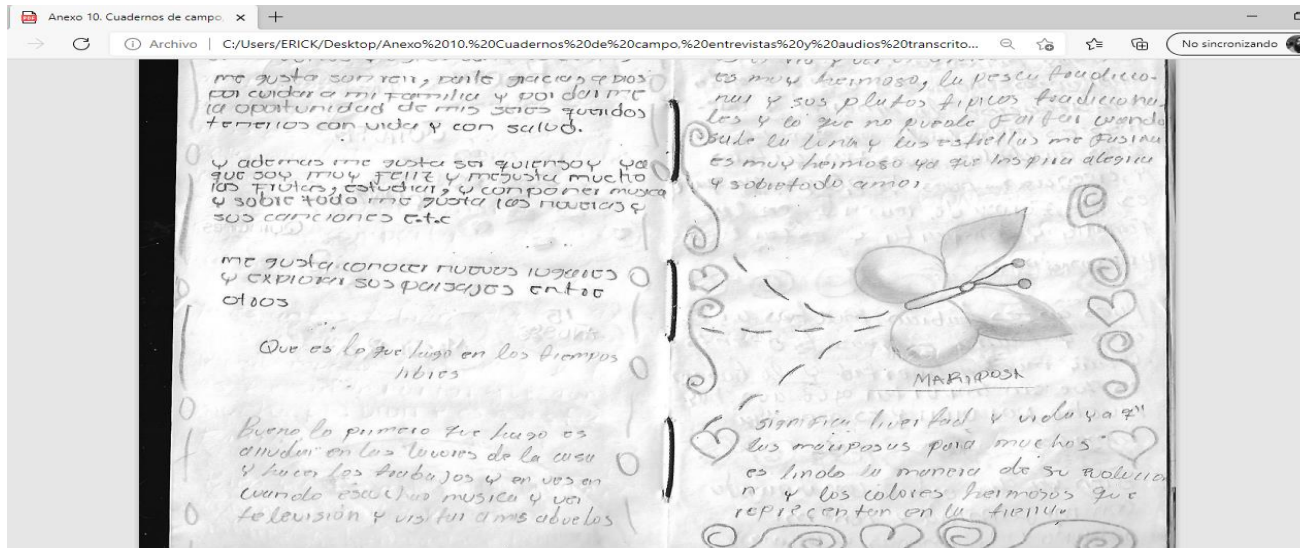 Anexo 10. Cuadernos de campo,
Archivo
C:/Users/ERICK/Desktop/Anexo%2010.%20Cuadernos%20de%20campo,%20entrevistas%20y%20audios%20transcrito...
No sincronizando
me gusta sonreir, darle gracias a Dios
por cuidar a mi familia y por darme
la oportunidad de mis seres queridos
tenerlos con vida y con salud.
y ademas me gusta ser quien soy ya
que soy muy feliz y me gusta mucho
las frutas, estudiar, y componer musica
y sobre todo me gusta las novelas y
sus canciones e.t.c
me gusta conocer nuevos lugares
y explorar sus paisajes entre
otros
Que es lo que hago en los tiempos
libres
Bueno lo primero que hago es
alludar en las lavores de la casa
y hacer los trabajos y en ves en
cuando escucho musica y ver
televisión y visitar a mis abuelos
es muy hermoso, la pesca tradicio-
nal y sus platos tipicos tradiciona-
les y lo que no puede faltar cuando
sale la luna y las estrellas me
es muy hermoso ya que inspira alegria
y sobretodo amor
MARIPOSA
significa livertad y vida ya q"
las mariposas para muchos
es lindo la manera de su evolucio
n y los colores hermosos que
representan en la tierra.